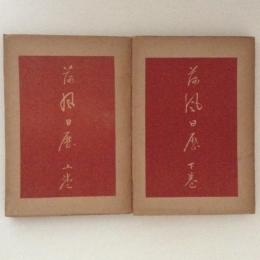 荷風日歴 上巻
荷風日歴 下巻